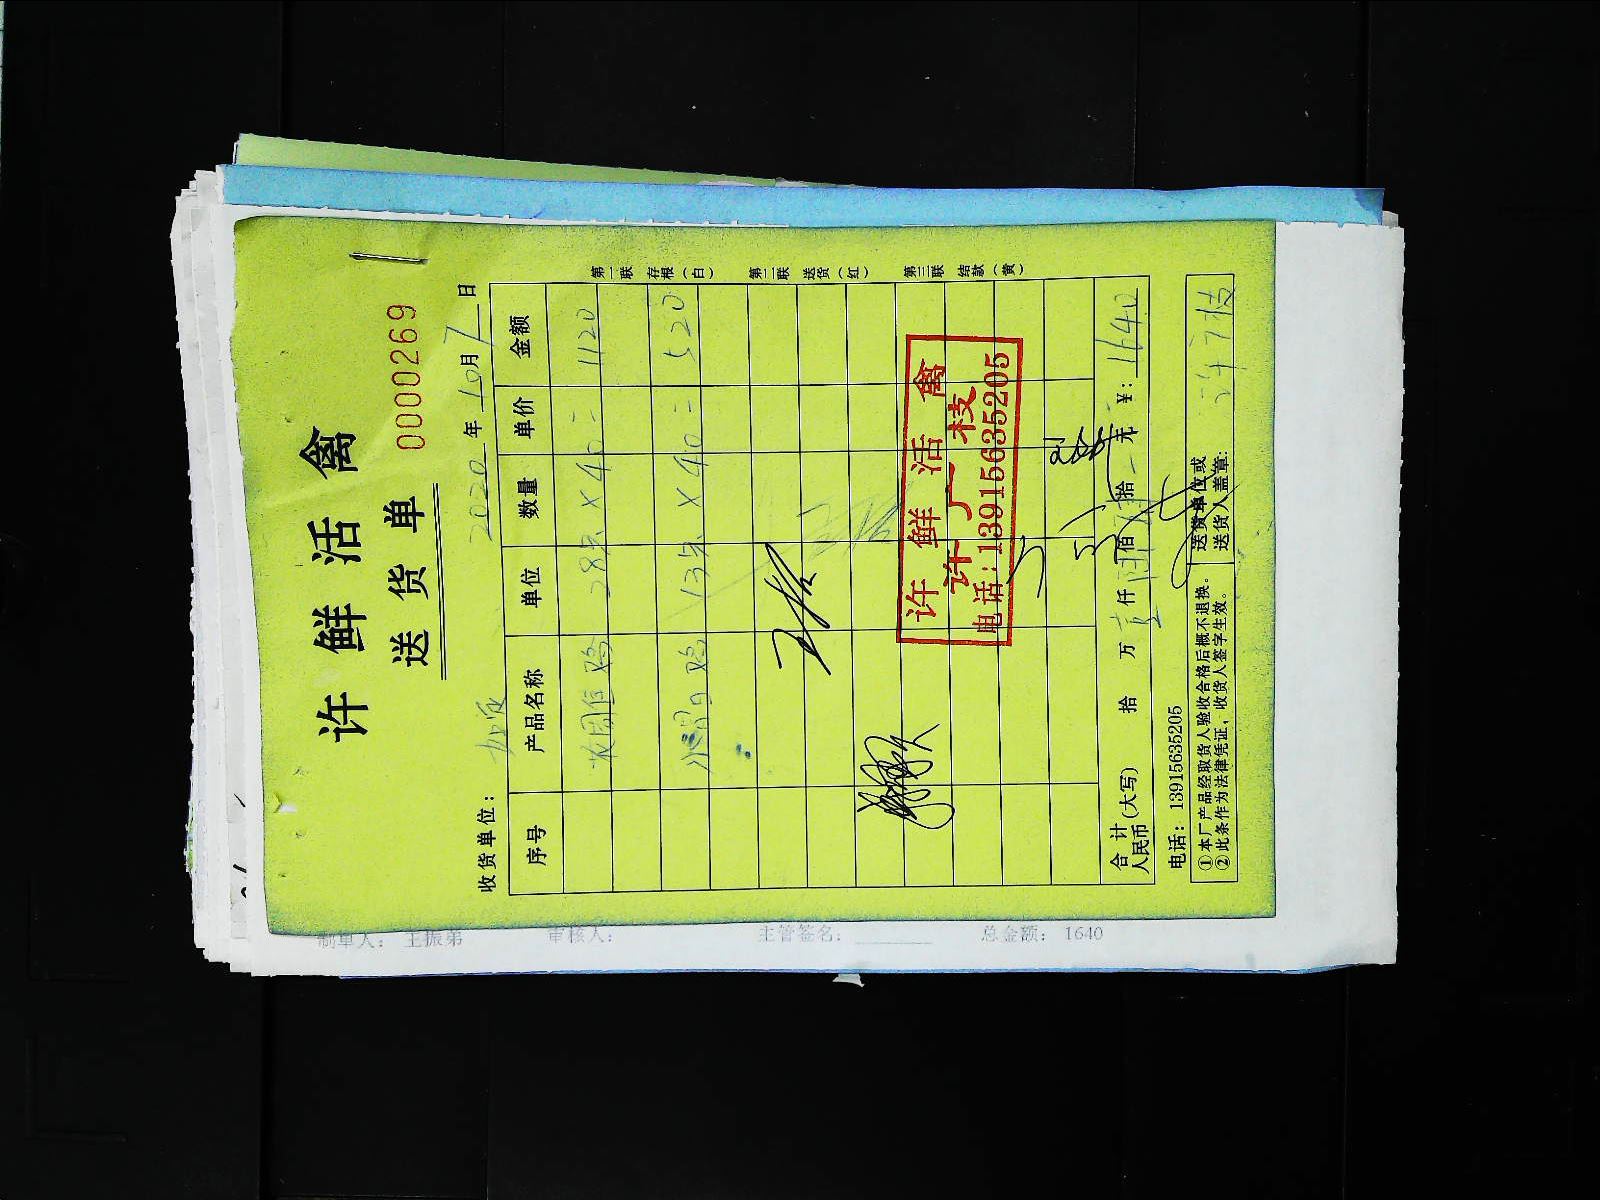 许鲜活禽
送货单 0000269
收货单位: 2020年10月7日
序号 产品名称 单位 数量 单价 金额
28只×40= 1120
13只×40= 520
第一联 存根(白) 第二联 送货(红) 第三联 结款(黄)
许鲜活禽
许广枝
电话:13915635205
合计
人民币(大写) 拾 万 仟 佰 拾 元 ¥:1640
电话:13915635205
①本厂产品经取货人验收合格后概不退换。
②此条作为法律凭证,收货人签字生效。
送货单位或
送货人盖章: 许广枝
制单人: 王振弟 审核人: 主管签名: 总金额: 1640